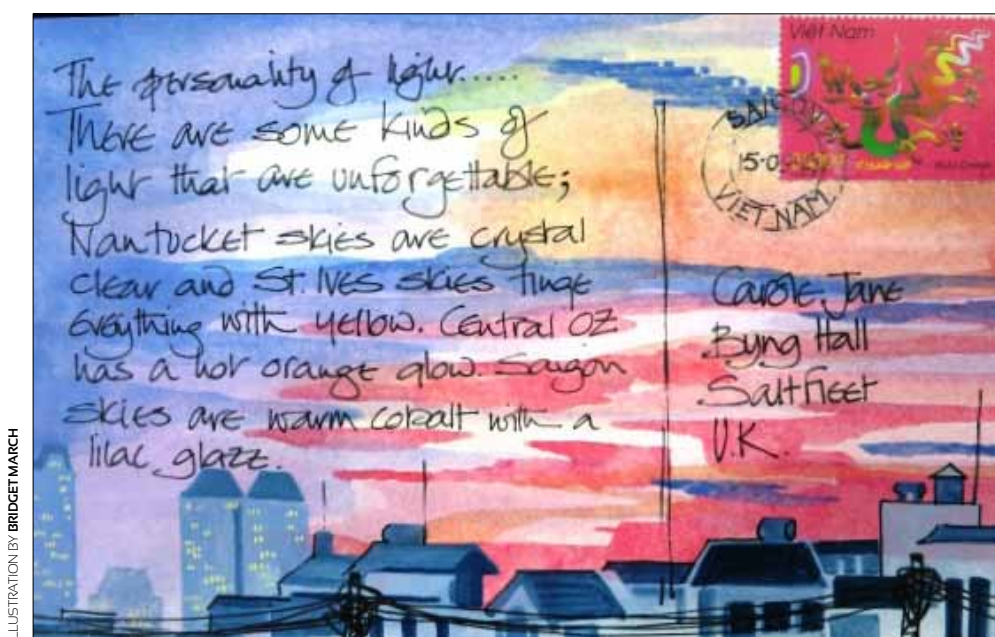 The personality of light.....
There are some kinds of
light that are unforgettable;
Nantucket skies are crystal
clear and St. Ives skies tinge
everything with yellow. Central OZ
has a hot orange glow. Saigon
skies are warm cobalt with a
lilac glaze.
Việt Nam
SAIGON
15-0
VIET NAM
Carole Jane
Byng Hall
Saltfleet
U.K.
ILLUSTRATION BY BRIDGET MARCH